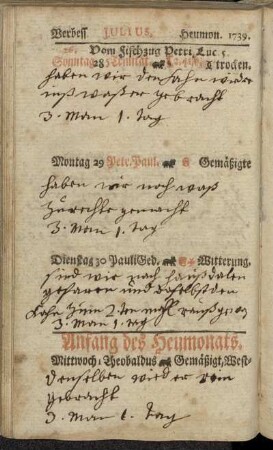 Verbess. JULIUS. Heumon. 1739.
Vom Fischzug Petri Luc 5.
Sonntag 28 trocken.
haben wir den Jahn wider
inß waßer gebracht
3. Man 1. Tag
Montag 29 Pet. Paul. Gemäßigte
haben wir noch waß
Zurechte gemacht
3. Man 1. Tag
Dienstag 30 Pauli Ged. Witterung.
sind wir nach
gefaren und daselbst den
2. ten mahl
3. Man 1. Tag
Anfang des Heumonats.
Mittwoch 1 Theobaldus Gemäßigt, West-
denselben wieder
gebracht
3. Man 1. Tag